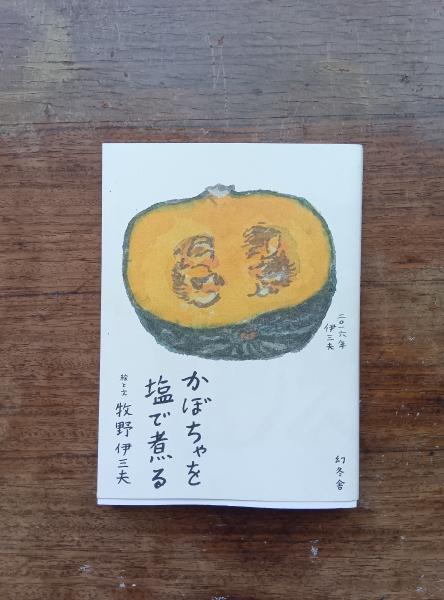 かぼちゃを
塩で煮る
絵と文
牧野伊三夫
二〇一六年
伊三夫
幻冬舎